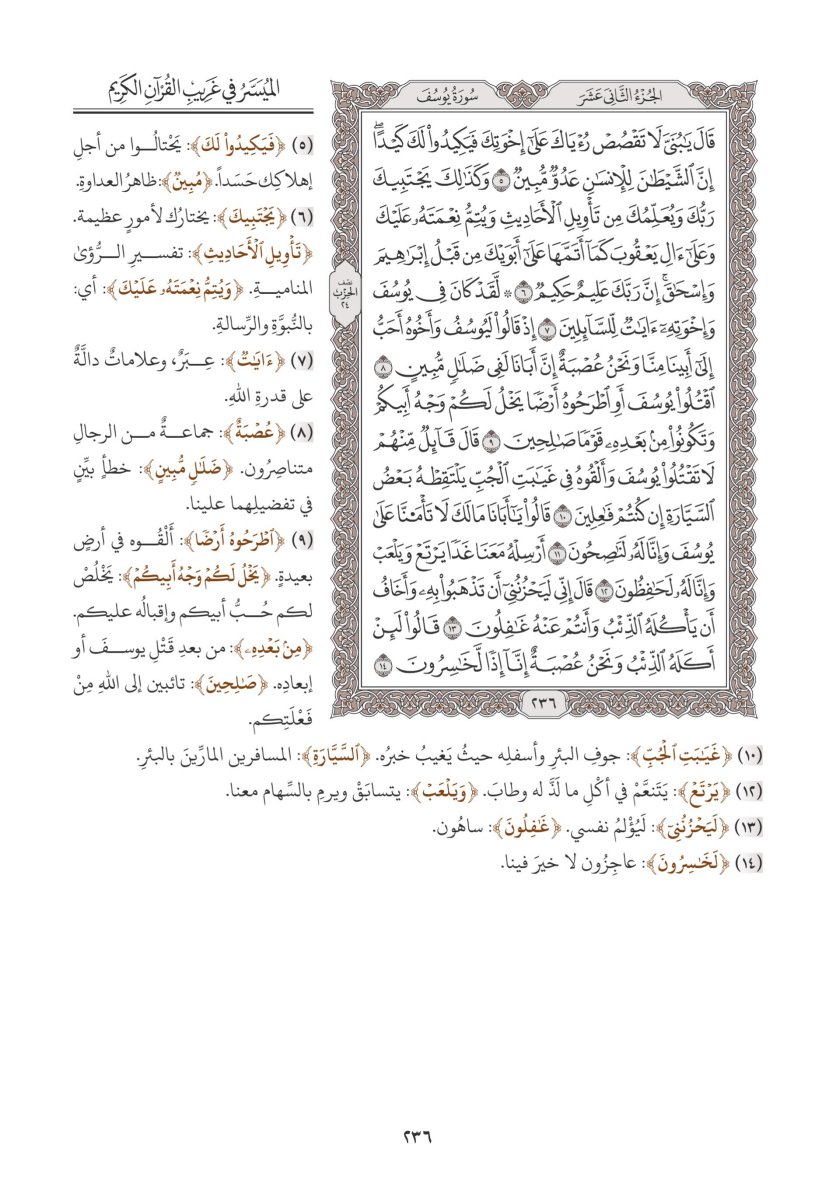 الميُسَّرُ في غَرِيبِ القُرْآنِ الكَرِيم
الجُزْءُ الثَّانِي عَشَرَ
سُورَةُ يُوسُفَ
قَالَ يَٰبُنَيَّ لَا تَقۡصُصۡ رُءۡيَاكَ عَلَىٰٓ إِخۡوَتِكَ فَيَكِيدُواْ لَكَ كَيۡدًاۖ
إِنَّ ٱلشَّيۡطَٰنَ لِلۡإِنسَٰنِ عَدُوّٞ مُّبِينٞ ٥ وَكَذَٰلِكَ يَجۡتَبِيكَ
رَبُّكَ وَيُعَلِّمُكَ مِن تَأۡوِيلِ ٱلۡأَحَادِيثِ وَيُتِمُّ نِعۡمَتَهُۥ عَلَيۡكَ
وَعَلَىٰٓ ءَالِ يَعۡقُوبَ كَمَآ أَتَمَّهَا عَلَىٰٓ أَبَوَيۡكَ مِن قَبۡلُ إِبۡرَٰهِيمَ
وَإِسۡحَٰقَۚ إِنَّ رَبَّكَ عَلِيمٌ حَكِيمٞ ٦ ۞ لَّقَدۡ كَانَ فِي يُوسُفَ
وَإِخۡوَتِهِۦٓ ءَايَٰتٞ لِّلسَّآئِلِينَ ٧ إِذۡ قَالُواْ لَيُوسُفُ وَأَخُوهُ أَحَبُّ
إِلَىٰٓ أَبِينَا مِنَّا وَنَحۡنُ عُصۡبَةٌ إِنَّ أَبَانَا لَفِي ضَلَٰلٖ مُّبِينٍ ٨
ٱقۡتُلُواْ يُوسُفَ أَوِ ٱطۡرَحُوهُ أَرۡضٗا يَخۡلُ لَكُمۡ وَجۡهُ أَبِيكُمۡ
وَتَكُونُواْ مِنۢ بَعۡدِهِۦ قَوۡمٗا صَٰلِحِينَ ٩ قَالَ قَآئِلٞ مِّنۡهُمۡ
لَا تَقۡتُلُواْ يُوسُفَ وَأَلۡقُوهُ فِي غَيَٰبَتِ ٱلۡجُبِّ يَلۡتَقِطۡهُ بَعۡضُ
ٱلسَّيَّارَةِ إِن كُنتُمۡ فَٰعِلِينَ ١٠ قَالُواْ يَٰٓأَبَانَا مَالَكَ لَا تَأۡمَ۬نَّا عَلَىٰ
يُوسُفَ وَإِنَّا لَهُۥ لَنَٰصِحُونَ ١١ أَرۡسِلۡهُ مَعَنَا غَدٗا يَرۡتَعۡ وَيَلۡعَبۡ
وَإِنَّا لَهُۥ لَحَٰفِظُونَ ١٢ قَالَ إِنِّي لَيَحۡزُنُنِيٓ أَن تَذۡهَبُواْ بِهِۦ وَأَخَافُ
أَن يَأۡكُلَهُ ٱلذِّئۡبُ وَأَنتُمۡ عَنۡهُ غَٰفِلُونَ ١٣ قَالُواْ لَئِنۡ
أَكَلَهُ ٱلذِّئۡبُ وَنَحۡنُ عُصۡبَةٌ إِنَّآ إِذٗا لَّخَٰسِرُونَ ١٤
نصف
الحزب
٢٤
٢٣٦
(٥) ﴿فَيَكِيدُواْ لَكَ﴾: يَحْتالُوا من أجلِ
إهلاكِك حَسَداً. ﴿مُبِينٞ﴾: ظاهرُ العداوةِ.
(٦) ﴿يَجۡتَبِيكَ﴾: يختارُك لأمورٍ عظيمة.
﴿تَأۡوِيلِ ٱلۡأَحَادِيثِ﴾: تفسيرِ الرُّؤىٰ
المناميةِ. ﴿وَيُتِمُّ نِعۡمَتَهُۥ عَلَيۡكَ﴾: أي:
بالنُّبوَّةِ والرِّسالةِ.
(٧) ﴿ءَايَٰتٞ﴾: عِبَرٌ، وعلاماتٌ دالَّةٌ
على قدرةِ اللهِ.
(٨) ﴿عُصۡبَةٌ﴾: جماعةٌ من الرجالِ
متناصِرُون. ﴿ضَلَٰلٖ مُّبِينٍ﴾: خطأٍ بيِّنٍ
في تفضيلِهما علينا.
(٩) ﴿ٱطۡرَحُوهُ أَرۡضٗا﴾: أَلْقُوه في أرضٍ
بعيدةٍ. ﴿يَخۡلُ لَكُمۡ وَجۡهُ أَبِيكُمۡ﴾: يَخْلُصْ
لكم حُبُّ أبيكم وإقبالُه عليكم.
﴿مِنۢ بَعۡدِهِۦ﴾: من بعدِ قَتْلِ يوسفَ أو
إبعادِه. ﴿صَٰلِحِينَ﴾: تائبين إلى اللهِ مِنْ
فَعْلَتِكم.
(١٠) ﴿غَيَٰبَتِ ٱلۡجُبِّ﴾: جوفِ البئرِ وأسفلِه حيثُ يَغيبُ خبرُه. ﴿ٱلسَّيَّارَةِ﴾: المسافرين المارِّينَ بالبئرِ.
(١٢) ﴿يَرۡتَعۡ﴾: يَتَنعَّمْ في أكْلِ ما لَذَّ له وطابَ. ﴿وَيَلۡعَبۡ﴾: يتسابَقْ ويرمِ بالسِّهام معنا.
(١٣) ﴿لَيَحۡزُنُنِيٓ﴾: لَيُؤْلمُ نفسي. ﴿غَٰفِلُونَ﴾: ساهُون.
(١٤) ﴿لَخَٰسِرُونَ﴾: عاجِزُون لا خيرَ فينا.
٢٣٦